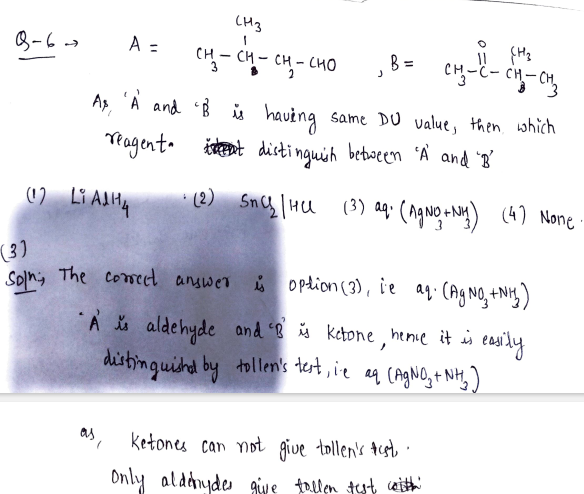 CH3
Q-6 → A = CH3 - CH - CH2 - CHO , B = CH3 - C - CH - CH3
O CH3
As, 'A' and 'B' is having same DU value, then which
reagent distinguish between 'A' and 'B'
(1) LiAlH4 (2) SnCl2/HCl (3) aq. (AgNO3+NH3) (4) None.
(3)
Soln; The correct answer is option (3), i.e aq. (AgNO3+NH3)
'A' is aldehyde and 'B' is ketone, hence it is easily
distinguished by tollen's test, i.e aq (AgNO3+NH3)
as, Ketones can not give tollen's test.
Only aldehydes give tollen test